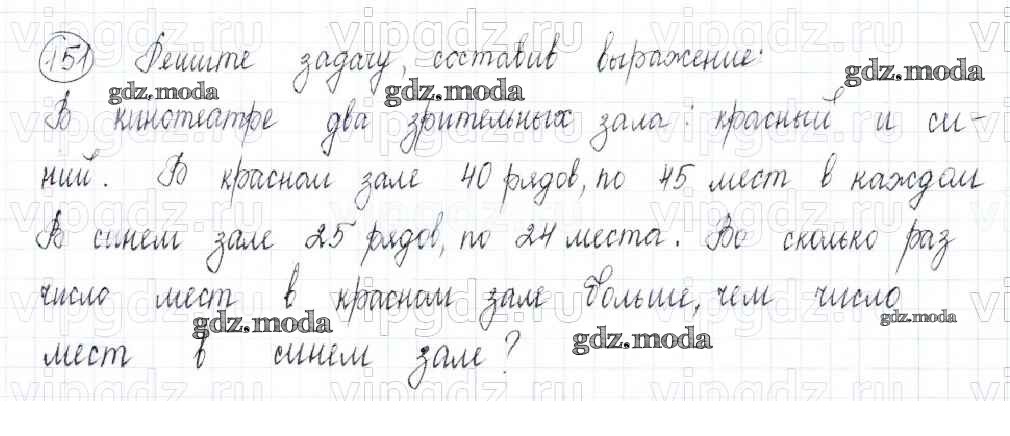 151 Решите задачу, составив выражение:
В кинотеатре два зрительных зала: красный и си-
ний. В красном зале 40 рядов, по 45 мест в каждом
В синем зале 25 рядов, по 24 места. Во сколько раз
число мест в красном зале больше, чем число
мест в синем зале?
gdz.moda
gdz.moda
gdz.moda
gdz.moda
gdz.moda
gdz.moda
vipgdz.ru